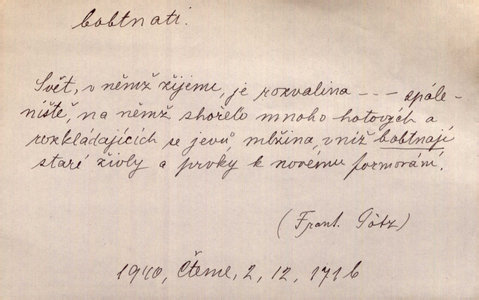 bobtnati.
Svět, v němž žijeme, je rozvalina --- spále-
niště, na němž shořelo mnoho hotových a
rozkládajících se jevů, mlžina, v níž bobtnají
staré živly a prvky k novému formování.
(Frant. Götz)
1940, Čteme, 2, 12, 171b